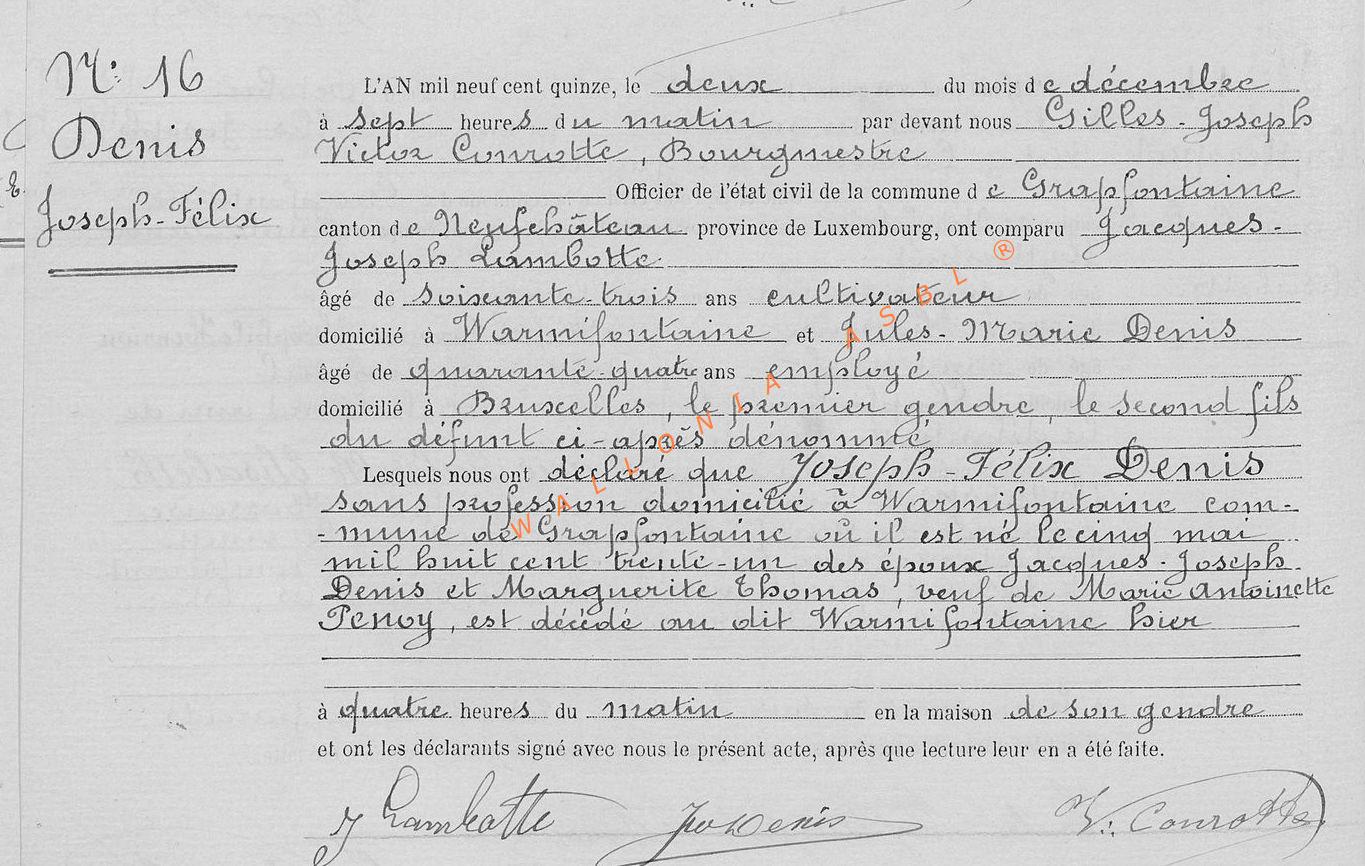 N° 16
Denis
Joseph-Félix
L'AN mil neuf cent quinze, le deux du mois de décembre
à sept heures du matin par devant nous Gilles-Joseph
Victor Conrotte, Bourgmestre
Officier de l'état civil de la commune de Grapfontaine
canton de Neufchâteau province de Luxembourg, ont comparu Jacques-
Joseph Lambotte
âgé de soixante-trois ans cultivateur
domicilié à Warmifontaine et Jules-Marie Denis
âgé de quarante-quatre ans employé
domicilié à Bruxelles, le premier gendre, le second fils
du défunt ci-après dénommé
Lesquels nous ont déclaré que Joseph-Félix Denis
sans profession domicilié à Warmifontaine com-
-mune de Grapfontaine où il est né le cinq mai
mil huit cent trente-un des époux Jacques-Joseph
Denis et Marguerite Thomas, veuf de Marie Antoinette
Penoy, est décédé au dit Warmifontaine hier
à quatre heures du matin en la maison de son gendre
et ont les déclarants signé avec nous le présent acte, après que lecture leur en a été faite.
J Lambotte Denis V. Conrotte
WALLONIA ASBL ®